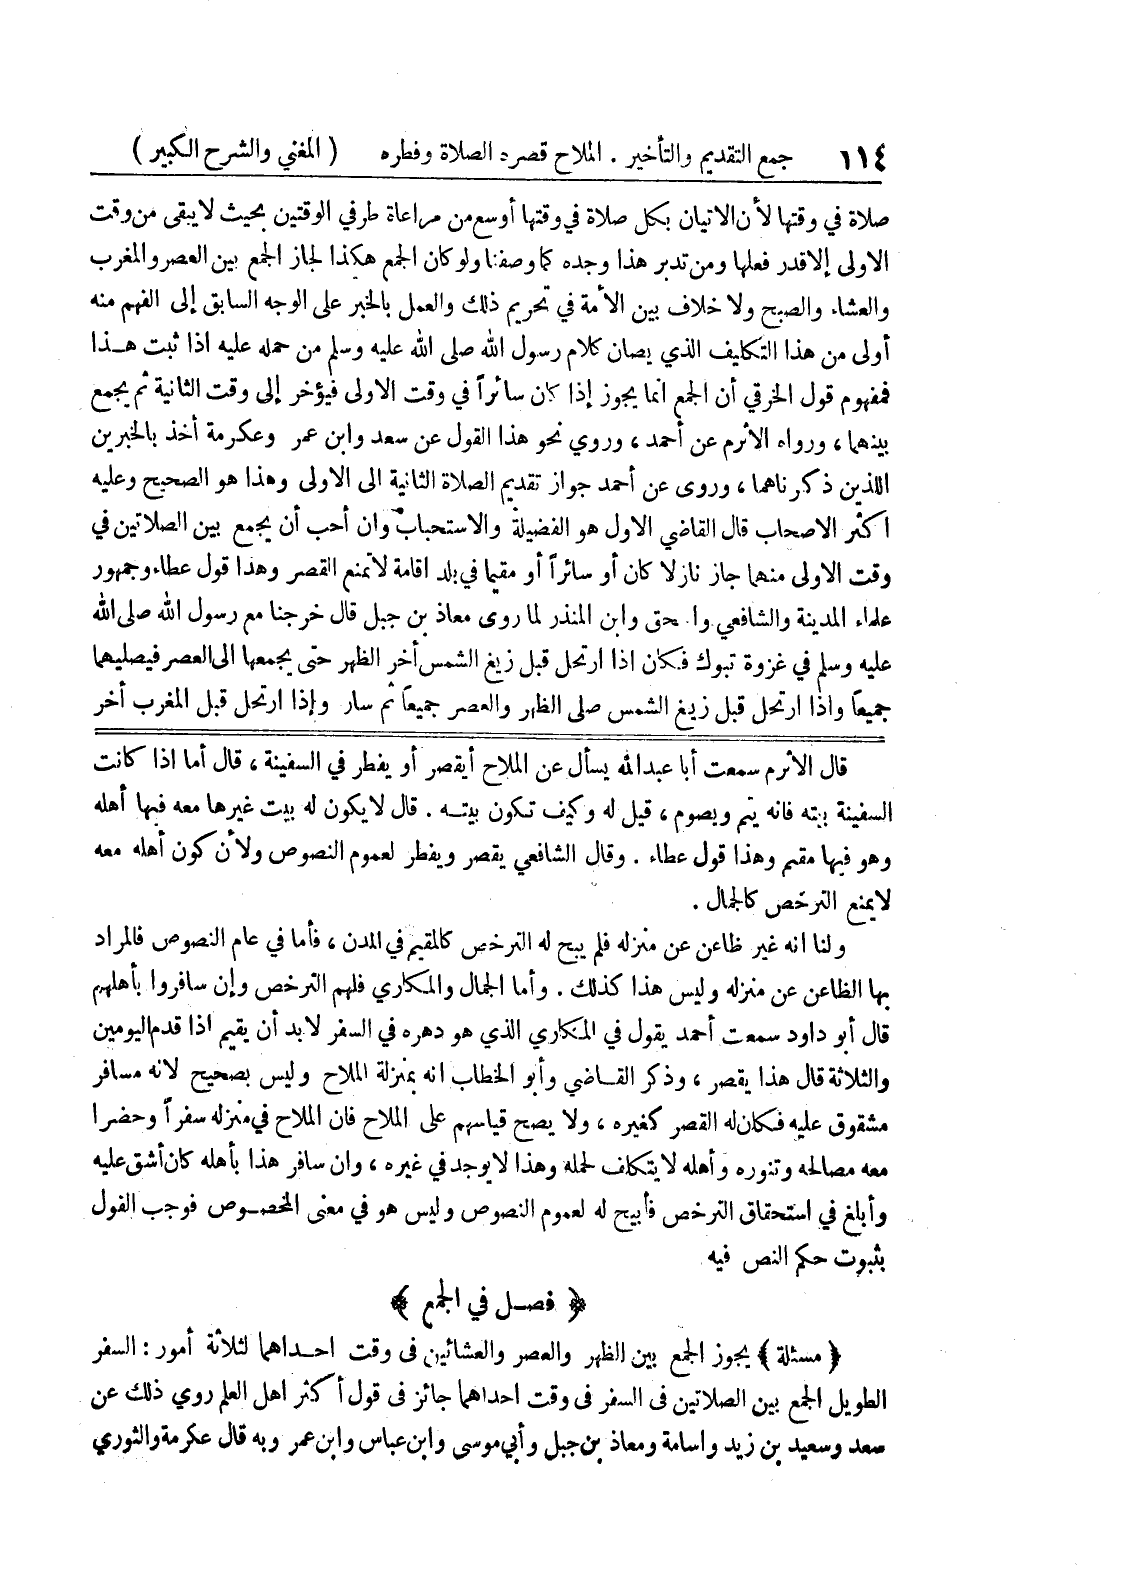 ١١٤ جمع التقديم والتأخير . الملاح قصره الصلاة وفطره ( المغني والشرح الكبير )
صلاة في وقتها لأن الاتيان بكل صلاة في وقتها أوسع من مراعاة طرفي الوقتين بحيث لا يبقى من وقت
الاولى إلا قدر فعلها ومن تدبر هذا وجده كما وصفنا ولو كان الجمع هكذا لجاز الجمع بين العصر والمغرب
والعشاء والصبح ولا خلاف بين الأمة في تحريم ذلك والعمل بالخبر على الوجه السابق إلى الفهم منه
أولى من هذا التكليف الذي يصان كلام رسول الله صلى الله عليه وسلم من حمله عليه اذا ثبت هـذا
فمفهوم قول الخرقي أن الجمع انما يجوز إذا كان سائراً في وقت الاولى فيؤخر إلى وقت الثانية ثم يجمع
بينهما ، ورواه الأثرم عن أحمد ، وروي نحو هذا القول عن سعد وابن عمر وعكرمة أخذ بالخبرين
اللذين ذكرناهما ، وروى عن أحمد جواز تقديم الصلاة الثانية الى الاولى وهذا هو الصحيح وعليه
اكثر الاصحاب قال القاضي الاول هو الفضيلة والاستحباب وان أحب أن يجمع بين الصلاتين في
وقت الاولى منهما جاز نازلا كان أو سائراً أو مقيما في بلد اقامة لا تمنع القصر وهذا قول عطاء وجمهور
علماء المدينة والشافعي وا حق وابن المنذر لما روى معاذ بن جبل قال خرجنا مع رسول الله صلى الله
عليه وسلم في غزوة تبوك فكان اذا ارتحل قبل زيغ الشمس أخر الظهر حتى يجمعها الى العصر فيصليهما
جميعاً واذا ارتحل قبل زيغ الشمس صلى الظهر والعصر جميعاً ثم سار وإذا ارتحل قبل المغرب أخر
قال الأثرم سمعت أبا عبدالله يسأل عن الملاح أيقصر أو يفطر في السفينة ، قال أما اذا كانت
السفينة بيته فانه يتم ويصوم ، قيل له وكيف تكون بيتـه . قال لا يكون له بيت غيرها معه فيها أهله
وهو فيها مقيم وهذا قول عطاء . وقال الشافعي يقصر ويفطر لعموم النصوص ولأن كون أهله معه
لا يمنع الترخص كالجمال .
ولنا انه غير ظاعن عن منزله فلم يبح له الترخص كالمقيم في المدن ، فأما في عام النصوص فالمراد
بها الظاعن عن منزله وليس هذا كذلك . وأما الجمال والمكاري فلهم الترخص وإن سافروا بأهلهم
قال أبو داود سمعت أحمد يقول في المكاري الذي هو دهره في السفر لابد أن يقيم اذا قدم اليومين
والثلاثة قال هذا يقصر ، وذكر القـاضي وأبو الخطاب انه بمنزلة الملاح وليس بصحيح لانه مسافر
مشقوق عليه فكان له القصر كغيره ، ولا يصح قياسهم على الملاح فان الملاح في منزله سفراً وحضرا
معه مصالحه وتنوره وأهله لا يتكلف لحمله وهذا لا يوجد في غيره ، وان سافر هذا بأهله كان أشق عليه
وأبلغ في استحقاق الترخص فأبيح له لعموم النصوص وليس هو في معنى المخصـوص فوجب القول
بثبوت حكم النص فيه
﴿ فصـل في الجمع ﴾
﴿ مسئلة ﴾ يجوز الجمع بين الظهر والعصر والعشائين فى وقت احـداهما لثلاثة أمور : السفر
الطويل الجمع بين الصلاتين فى السفر فى وقت احداهما جائز فى قول أكثر اهل العلم روي ذلك عن
سعد وسعيد بن زيد واسامة ومعاذ بن جبل وأبي موسى وابن عباس وابن عمر وبه قال عكرمة والثوري